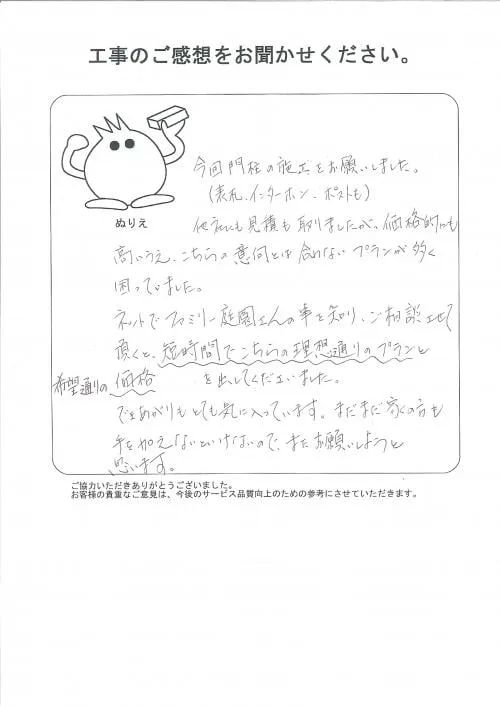 工事のご感想をお聞かせください。
ぬりえ
今回門柱の施工をお願いしました。
(表札、インターホン、ポストも)
他社にも見積も取りましたが、価格的にも
高いうえ、こちらの意向とは合わないプランが多く
困っていました。
ネットでファミリー庭園さんの事を知り、ご相談させて
頂くと、短時間でこちらの理想通りのプランと
希望通りの価格を出してくださいました。
でき上がりもとても気に入っています。まだまだ家の方も
手を加えないといけないので、またお願いしようと
思います。
ご協力いただきありがとうございました。
お客様の貴重なご意見は、今後のサービス品質向上のための参考にさせていただきます。